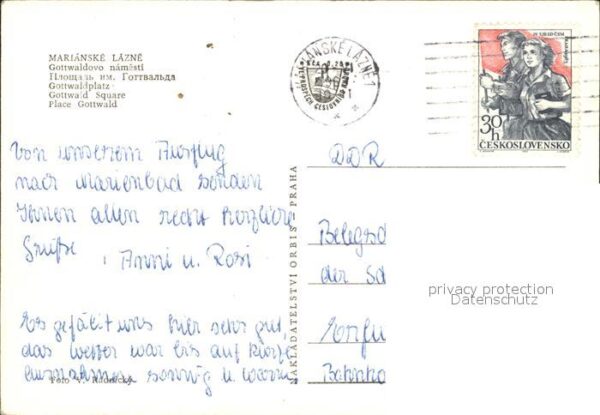 MARIÁNSKÉ LÁZNĚ
Gottwaldovo náměstí
Площадь им. Готтвальда
Gottwaldplatz
Gottwald Square
Place Gottwald
MARIÁNSKÉ LÁZNĚ 1
30h
ČESKOSLOVENSKO
Von unserem Ausflug
nach Marienbad senden
Ihnen allen recht herzliche
Grüße
Anni u. Rosi
Es gefällt uns hier sehr gut,
das Wetter war bis auf kurze
sonnig u. warm
Foto V.
NAKLADATELSTVÍ ORBIS – PRAHA
DDR
Belegsch
der
Erfu
Bahnho
privacy protection
Datenschutz